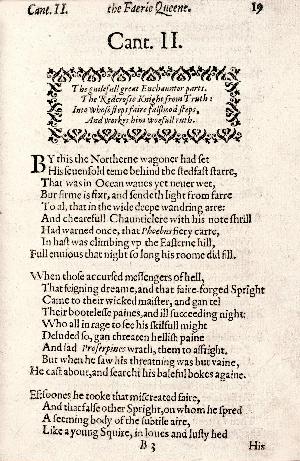 Cant. II. the Faerie Queene. 19
Cant. II.
The guilefull great Enchaunter parts
The Redcrosse Knight from Truth:
Into whose steps faire falshood steps,
And workes him woefull ruth.
BY this the Northerne wagoner had set
His seuenfold teme behind the stedfast starre,
That was in Ocean waues yet neuer wet,
But firme is fixt, and sendeth light from farre
To al, that in the wide deepe wandring arre:
And chearefull Chaunticlere with his note shrill
Had warned once, that Phœbus fiery carre,
In hast was climbing vp the Easterne hill,
Full enuious that night so long his roome did fill.
When those accursed messengers of hell,
That feigning dreame, and that faire-forged Spright
Came to their wicked maister, and gan tel
Their bootelesse paines, and ill succeeding night:
Who all in rage to see his skilfull might
Deluded so, gan threaten hellish paine
And sad Proserpines wrath, them to affright.
But when he saw his threatning was but vaine,
He cast about, and searcht his baleful bokes againe.
Eftsoones he tooke that miscreated faire,
And that false other Spright, on whom he spred
A seeming body of the subtile aire,
Like a young Squire, in loues and lusty hed
B 3 His